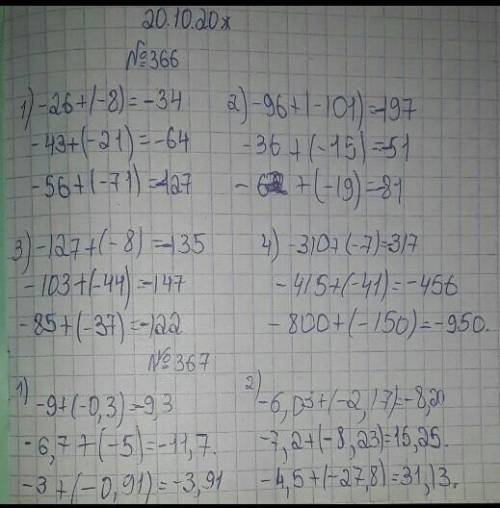 20.10.20х
№366
1) -26+(-8)=-34 2) -96+(-101)=-197
-43+(-21)=-64 -36+(-15)=-51
-56+(-71)=-127 -62+(-19)=-81
3) -127+(-8)=-135 4) -310+(-7)=-317
-103+(-44)=-147 -415+(-41)=-456
-85+(-37)=-122 -800+(-150)=-950.
№367
1) -9+(-0,3)=9,3 2) -6,03+(-2,17)=-8,20
-6,7+(-5)=-11,7. -7,2+(-8,23)=15,25.
-3+(-0,91)=-3,91 -4,5+(-27,8)=31,13.